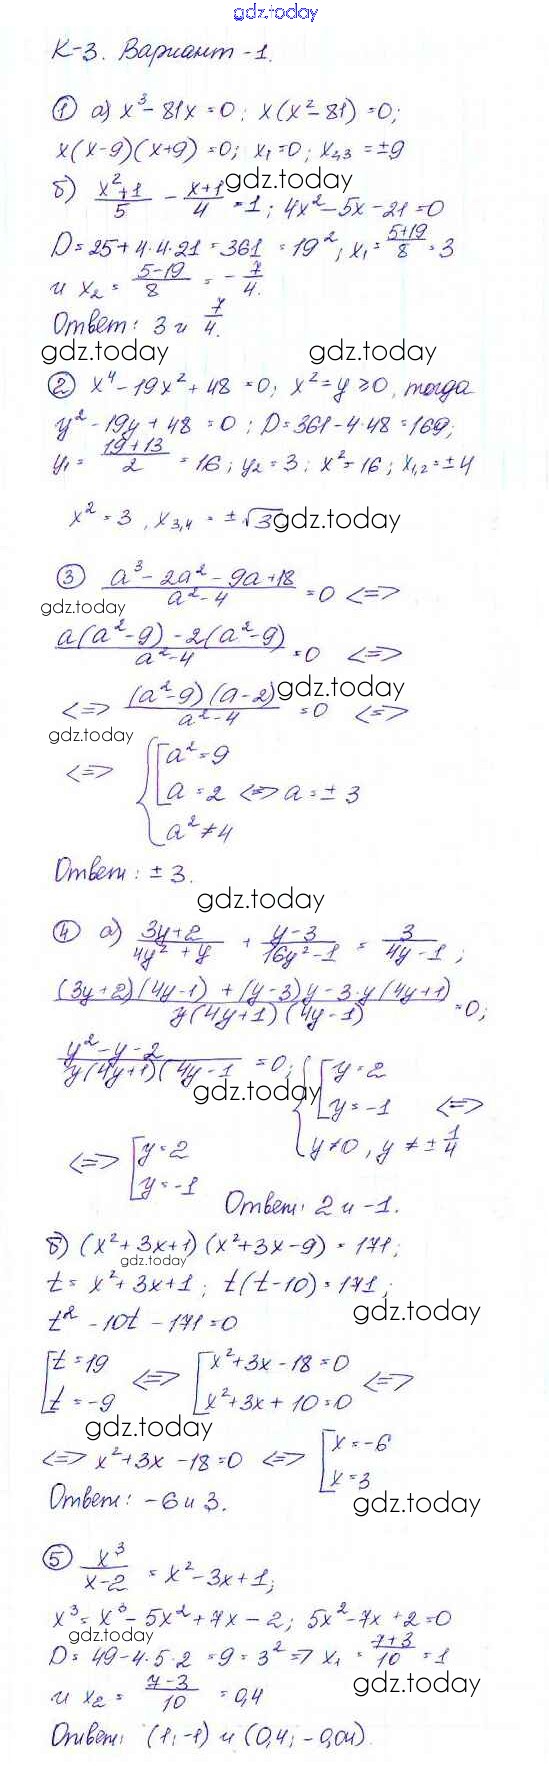 gdz.today
К-3. Вариант -1.
① а) x³ - 81x = 0; x(x² - 81) = 0;
x(x-9)(x+9) = 0; x₁ = 0; x₂,₃ = ±9
gdz.today
б) (x²+1)/5 - (x+1)/4 = 1; 4x² - 5x - 21 = 0
D = 25 + 4·4·21 = 361 = 19²; x₁ = (5+19)/8 = 3
и x₂ = (5-19)/8 = -7/4.
Ответ: 3 и 7/4.
gdz.today gdz.today
② x⁴ - 19x² + 48 = 0; x² = y ≥ 0, тогда
y² - 19y + 48 = 0; D = 361 - 4·48 = 169;
y₁ = (19+13)/2 = 16; y₂ = 3; x² = 16; x₁,₂ = ±4
x² = 3, x₃,₄ = ±√3
gdz.today
③ (a³ - 2a² - 9a + 18)/(a² - 4) = 0 <=>
gdz.today
(a(a² - 9) - 2(a² - 9))/(a² - 4) = 0 <=>
<=> ((a² - 9)(a - 2))/(a² - 4) = 0 <=>
gdz.today
gdz.today
<=> { [ a² = 9
a = 2 <=> a = ± 3
a² ≠ 4
Ответ: ± 3.
gdz.today
④ а) (3y+2)/(4y² + y) + (y-3)/(16y² - 1) = 3/(4y - 1);
((3y+2)(4y-1) + (y-3)y - 3·y(4y+1))/(y(4y+1)(4y-1)) = 0;
(y² - y - 2)/(y(4y+1)(4y-1 = 0; { [ y = 2
gdz.today
y = -1 <=>
y ≠ 0, y ≠ ± 1/4
<=> [ y = 2
y = -1
Ответ: 2 и -1.
б) (x² + 3x + 1)(x² + 3x - 9) = 171;
gdz.today
t = x² + 3x + 1; t(t - 10) = 171;
gdz.today
t² - 10t - 171 = 0
[ t = 19 <=> [ x² + 3x - 18 = 0 <=>
t = -9 x² + 3x + 10 = 0
gdz.today
<=> x² + 3x - 18 = 0 <=> [ x = -6
x = 3
Ответ: -6 и 3.
gdz.today
⑤ x³/(x-2) = x² - 3x + 1;
x³ = x³ - 5x² + 7x - 2; 5x² - 7x + 2 = 0
gdz.today
D = 49 - 4·5·2 = 9 = 3² => x₁ = (7+3)/10 = 1
и x₂ = (7-3)/10 = 0,4
gdz.today
Ответ: (1; -1) и (0,4; -0,04).